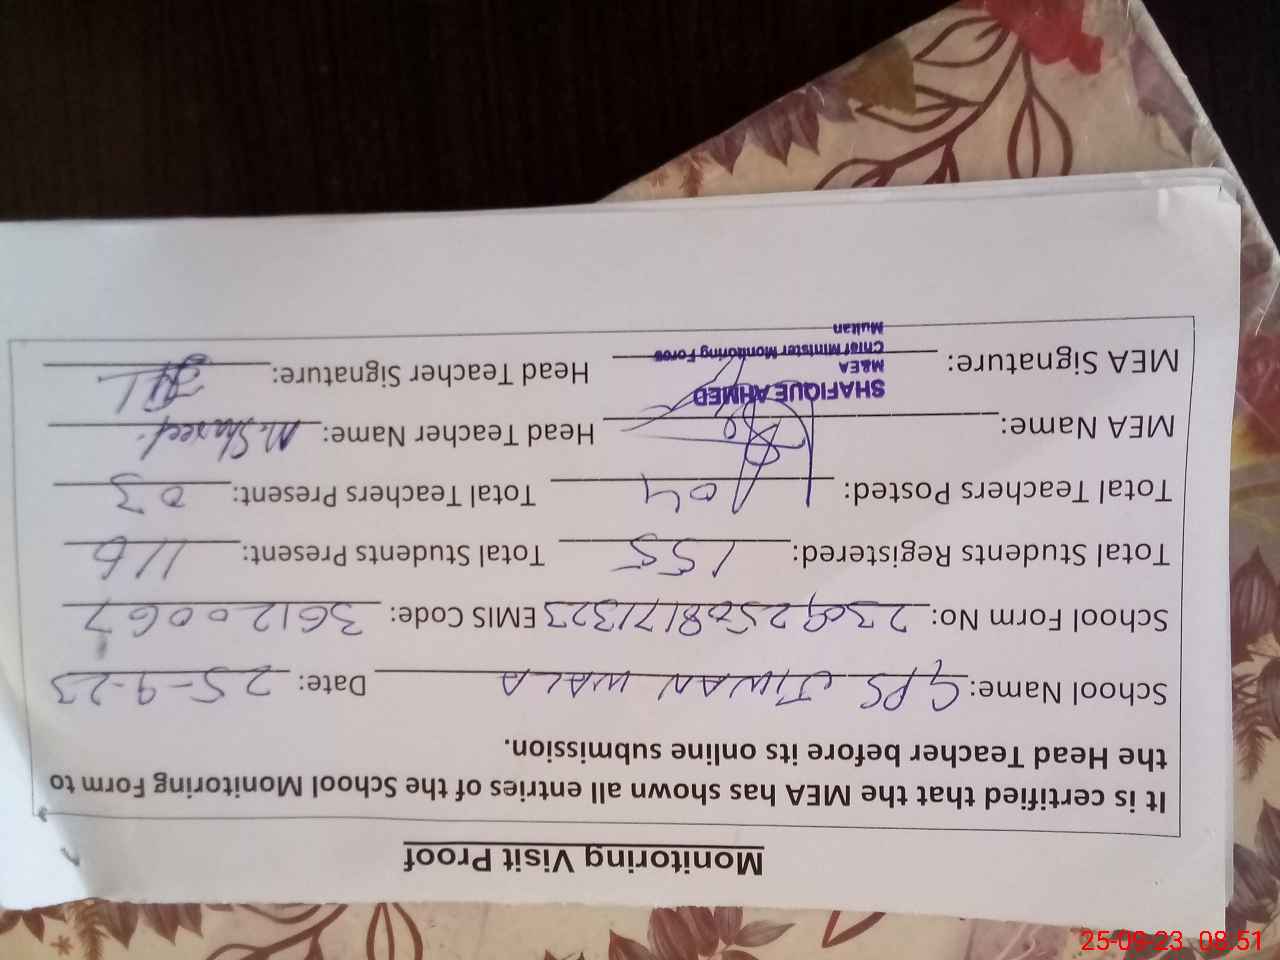 Monitoring Visit Proof
It is certified that the MEA has shown all entries of the School Monitoring Form to
the Head Teacher before its online submission.
School Name: GPS JIWAN WALA Date: 25-9-23
School Form No: 23092508171323 EMIS Code: 36120067
Total Students Registered: 155 Total Students Present: 116
Total Teachers Posted: 04 Total Teachers Present: 03
MEA Name: Head Teacher Name: M. Shareef
SHAFIQUE AHMED
M&EA
MEA Signature: Head Teacher Signature:
Chief Minister Monitoring Force
Multan
25-09-23 08:51